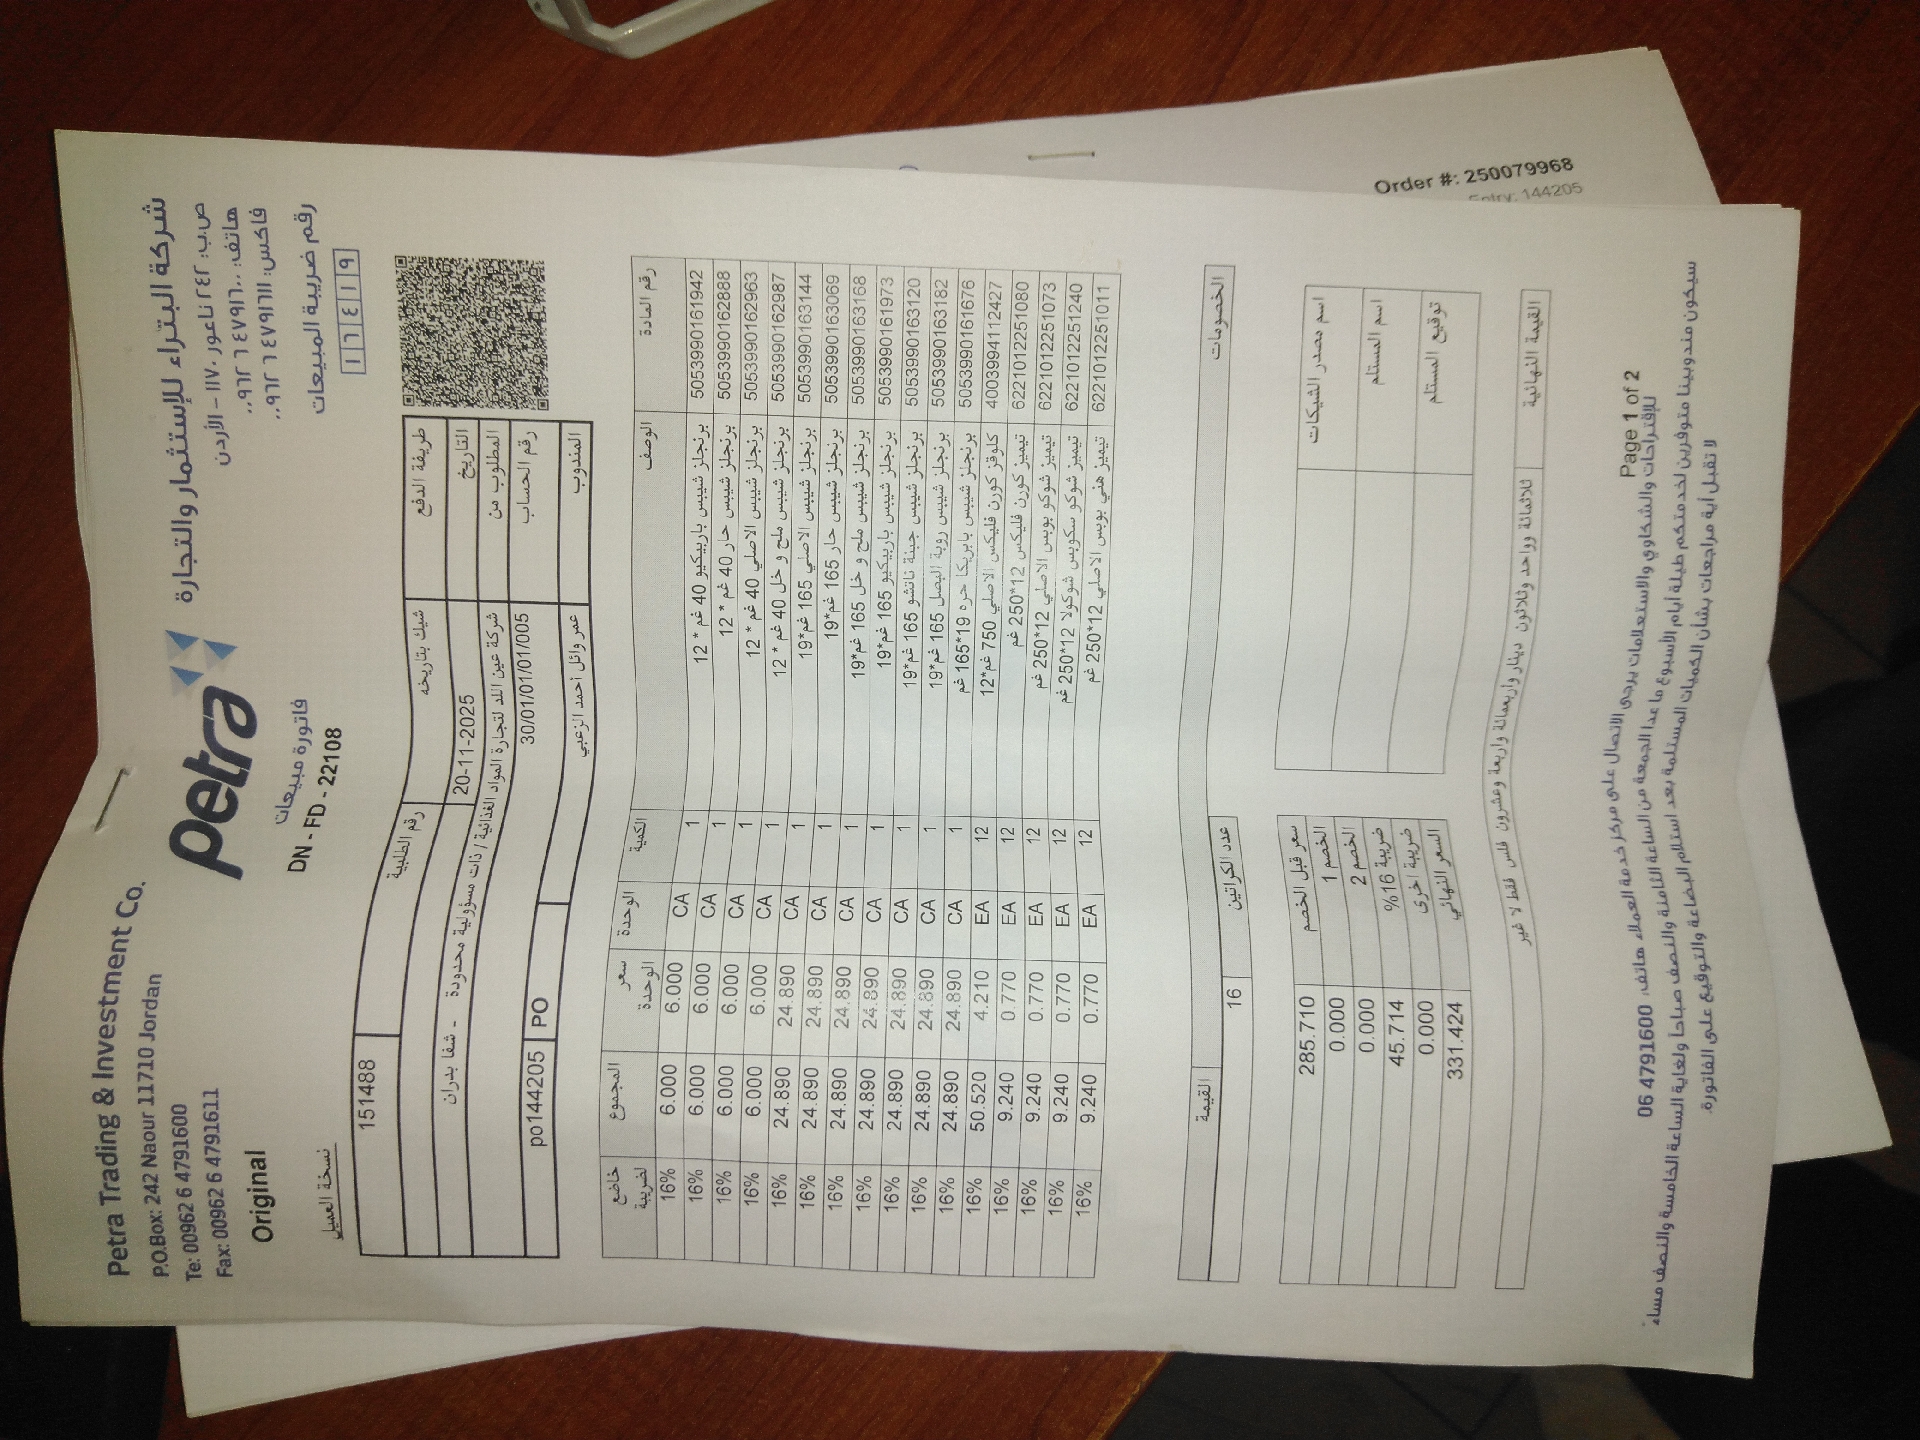 Petra Trading & Investment Co.
P.O.Box: 242 Naour 11710 Jordan
Te: 00962 6 4791600
Fax: 00962 6 4791611
petra
شركة البتراء للإستثمار والتجارة
ص.ب: ٢٤٢ ناعور ١١٧٠ – الأردن
هاتف: ٤٧٩١٦٠٠ ٦ ٠٠٩٦٢
فاكس: ٤٧٩١٦١١ ٦ ٠٠٩٦٢
رقم ضريبة المبيعات
١ ٦ ٤ ١ ٩
Original
نسخة العميل
فاتورة مبيعات
DN - FD - 22108
طريقة الدفع شيك بتاريخه رقم الطلبية 151488
التاريخ 20-11-2025
المطلوب من شركة عين اللد لتجارة المواد الغذائية / ذات مسؤولية محدودة - شفا بدران
رقم الحساب 30/01/01/01/005 PO po144205
المندوب عمر وائل احمد الزعبي
رقم المادة الوصف الكمية الوحدة سعر الوحدة المجموع خاضع لضريبة
5053990161942 برنجلز شيبس باربيكيو 40 غم * 12 1 CA 6.000 6.000 16%
5053990162888 برنجلز شيبس حار 40 غم * 12 1 CA 6.000 6.000 16%
5053990162963 برنجلز شيبس الاصلي 40 غم * 12 1 CA 6.000 6.000 16%
5053990162987 برنجلز شيبس ملح و خل 40 غم * 12 1 CA 6.000 6.000 16%
5053990163144 برنجلز شيبس الاصلي 165 غم*19 1 CA 24.890 24.890 16%
5053990163069 برنجلز شيبس حار 165 غم*19 1 CA 24.890 24.890 16%
5053990163168 برنجلز شيبس ملح و خل 165 غم*19 1 CA 24.890 24.890 16%
5053990161973 برنجلز شيبس باربيكيو 165 غم*19 1 CA 24.890 24.890 16%
5053990163120 برنجلز شيبس جبنة ناتشو 165 غم*19 1 CA 24.890 24.890 16%
5053990163182 برنجلز شيبس روبة البصل 165 غم*19 1 CA 24.890 24.890 16%
5053990161676 برنجلز شيبس بابريكا حره 19*165 غم 1 CA 24.890 24.890 16%
4003994112427 كلوقز كورن فليكس الاصلي 750 غم*12 12 EA 4.210 50.520 16%
6221012251080 تيميز كورن فليكس 12*250 غم 12 EA 0.770 9.240 16%
6221012251073 تيميز شوكو بوبس الاصلي 12*250 غم 12 EA 0.770 9.240 16%
6221012251240 تيميز شوكو سكوبس شوكولا 12*250 غم 12 EA 0.770 9.240 16%
6221012251011 تيميز هني بوبس الاصلي 12*250 غم 12 EA 0.770 9.240 16%
الخصومات عدد الكراتين القيمة
16
اسم مصدر الشيكات
اسم المستلم
توقيع المستلم
سعر قبل الخصم 285.710
الخصم 1 0.000
الخصم 2 0.000
ضريبة 16% 45.714
ضريبة اخرى 0.000
السعر النهائي 331.424
القيمة النهائية ثلاثمائة وواحد وثلاثون دينار واربعمائة واربعة وعشرون فلس فقط لا غير
Page 1 of 2
للإقتراحات والشكاوي والاستعلامات يرجى الاتصال على مركز خدمة العملاء هاتف: 4791600 06
سيكون مندوبينا متوفرين لخدمتكم طيلة أيام الأسبوع ما عدا الجمعة من الساعة الثامنة والنصف صباحا ولغاية الساعة الخامسة والنصف مساء
لا تقبل أية مراجعات بشأن الكميات المستلمة بعد استلام البضاعة والتوقيع على الفاتورة.
Order #: 250079968
Entry: 144205